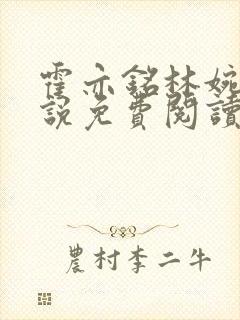 霍亦銘林婉
說免費閱讀
農村李二牛